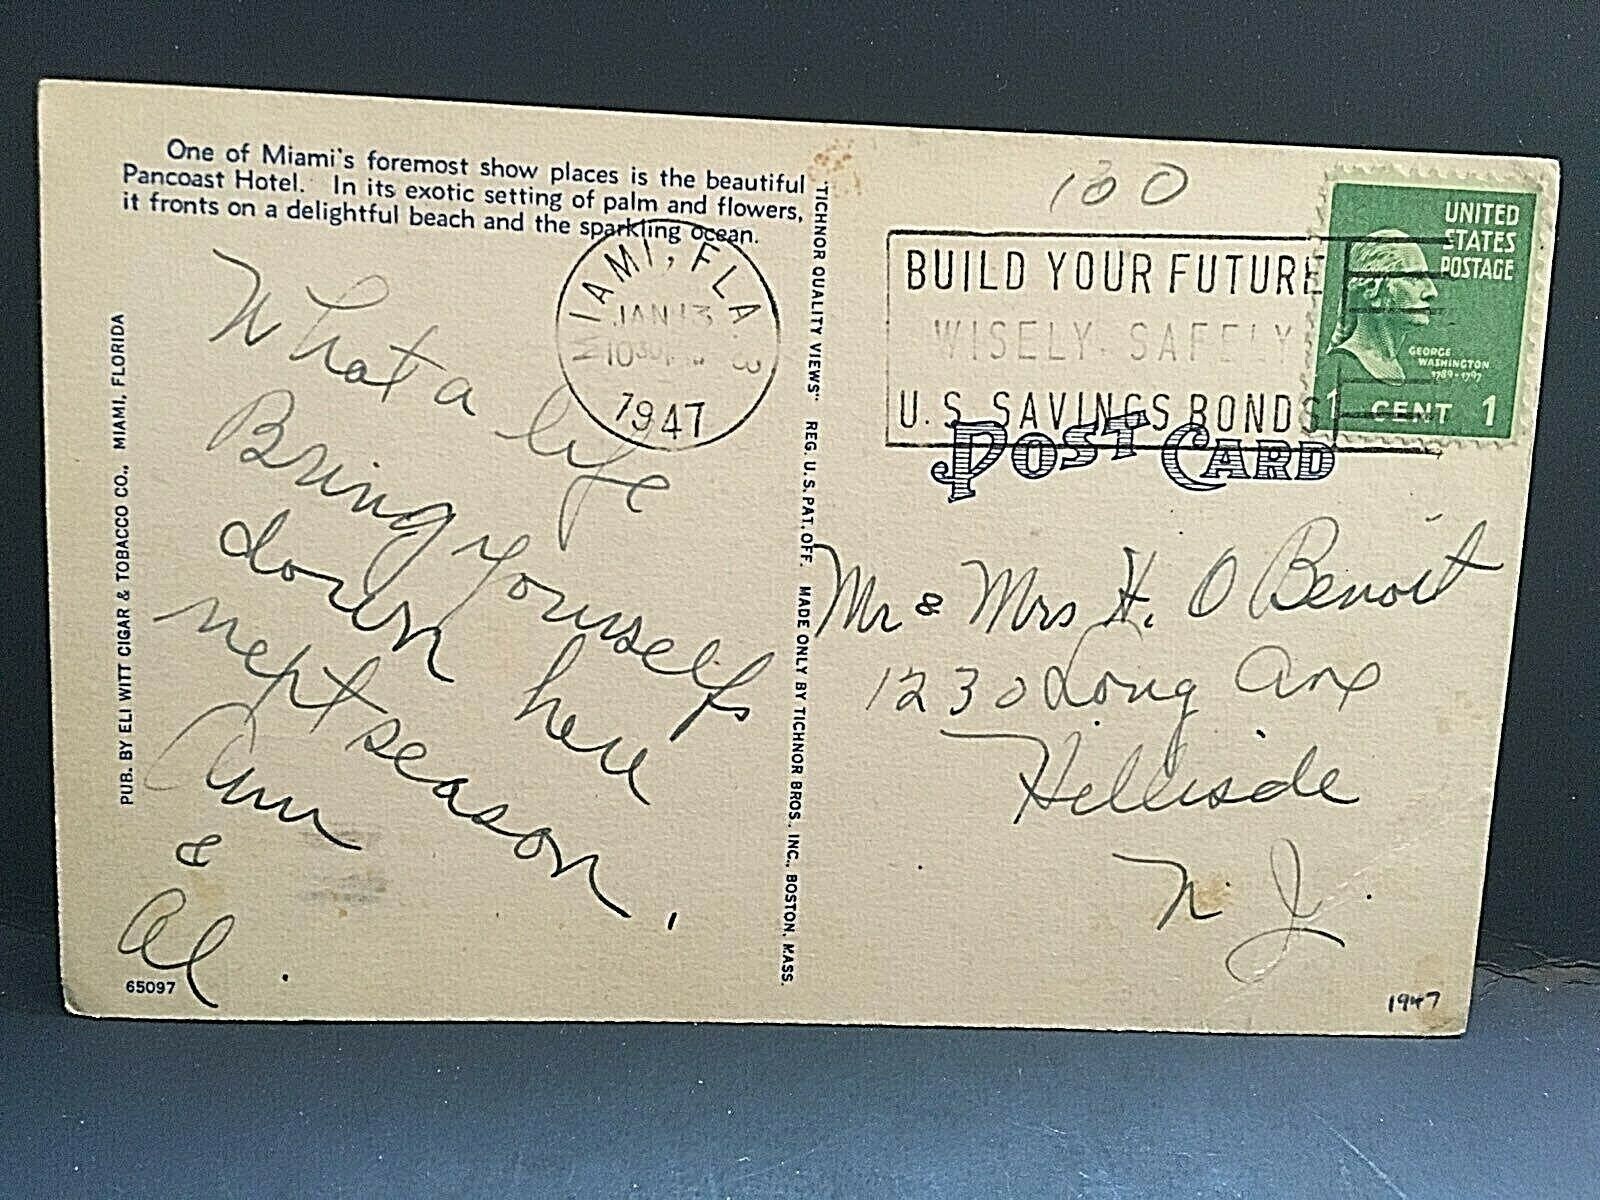 One of Miami's foremost show places is the beautiful
Pancoast Hotel. In its exotic setting of palm and flowers,
it fronts on a delightful beach and the sparkling ocean.
What a life
Bring yourselfs
down here
next season.
Ann
&
Al.
65097
PUB. BY ELI WITT CIGAR & TOBACCO CO., MIAMI, FLORIDA
MIAMI, FLA. 3
JAN 13
1947
"TICHNOR QUALITY VIEWS" REG. U. S. PAT. OFF. MADE ONLY BY TICHNOR BROS., INC., BOSTON, MASS.
130
BUILD YOUR FUTURE
WISELY, SAFELY
U.S. SAVINGS BONDS
UNITED
STATES
POSTAGE
GEORGE
WASHINGTON
1789-1797
1 CENT 1
POST CARD
Mr & Mrs H. O Benoit
1230 Long Ave
Hillside
N. J.
1947